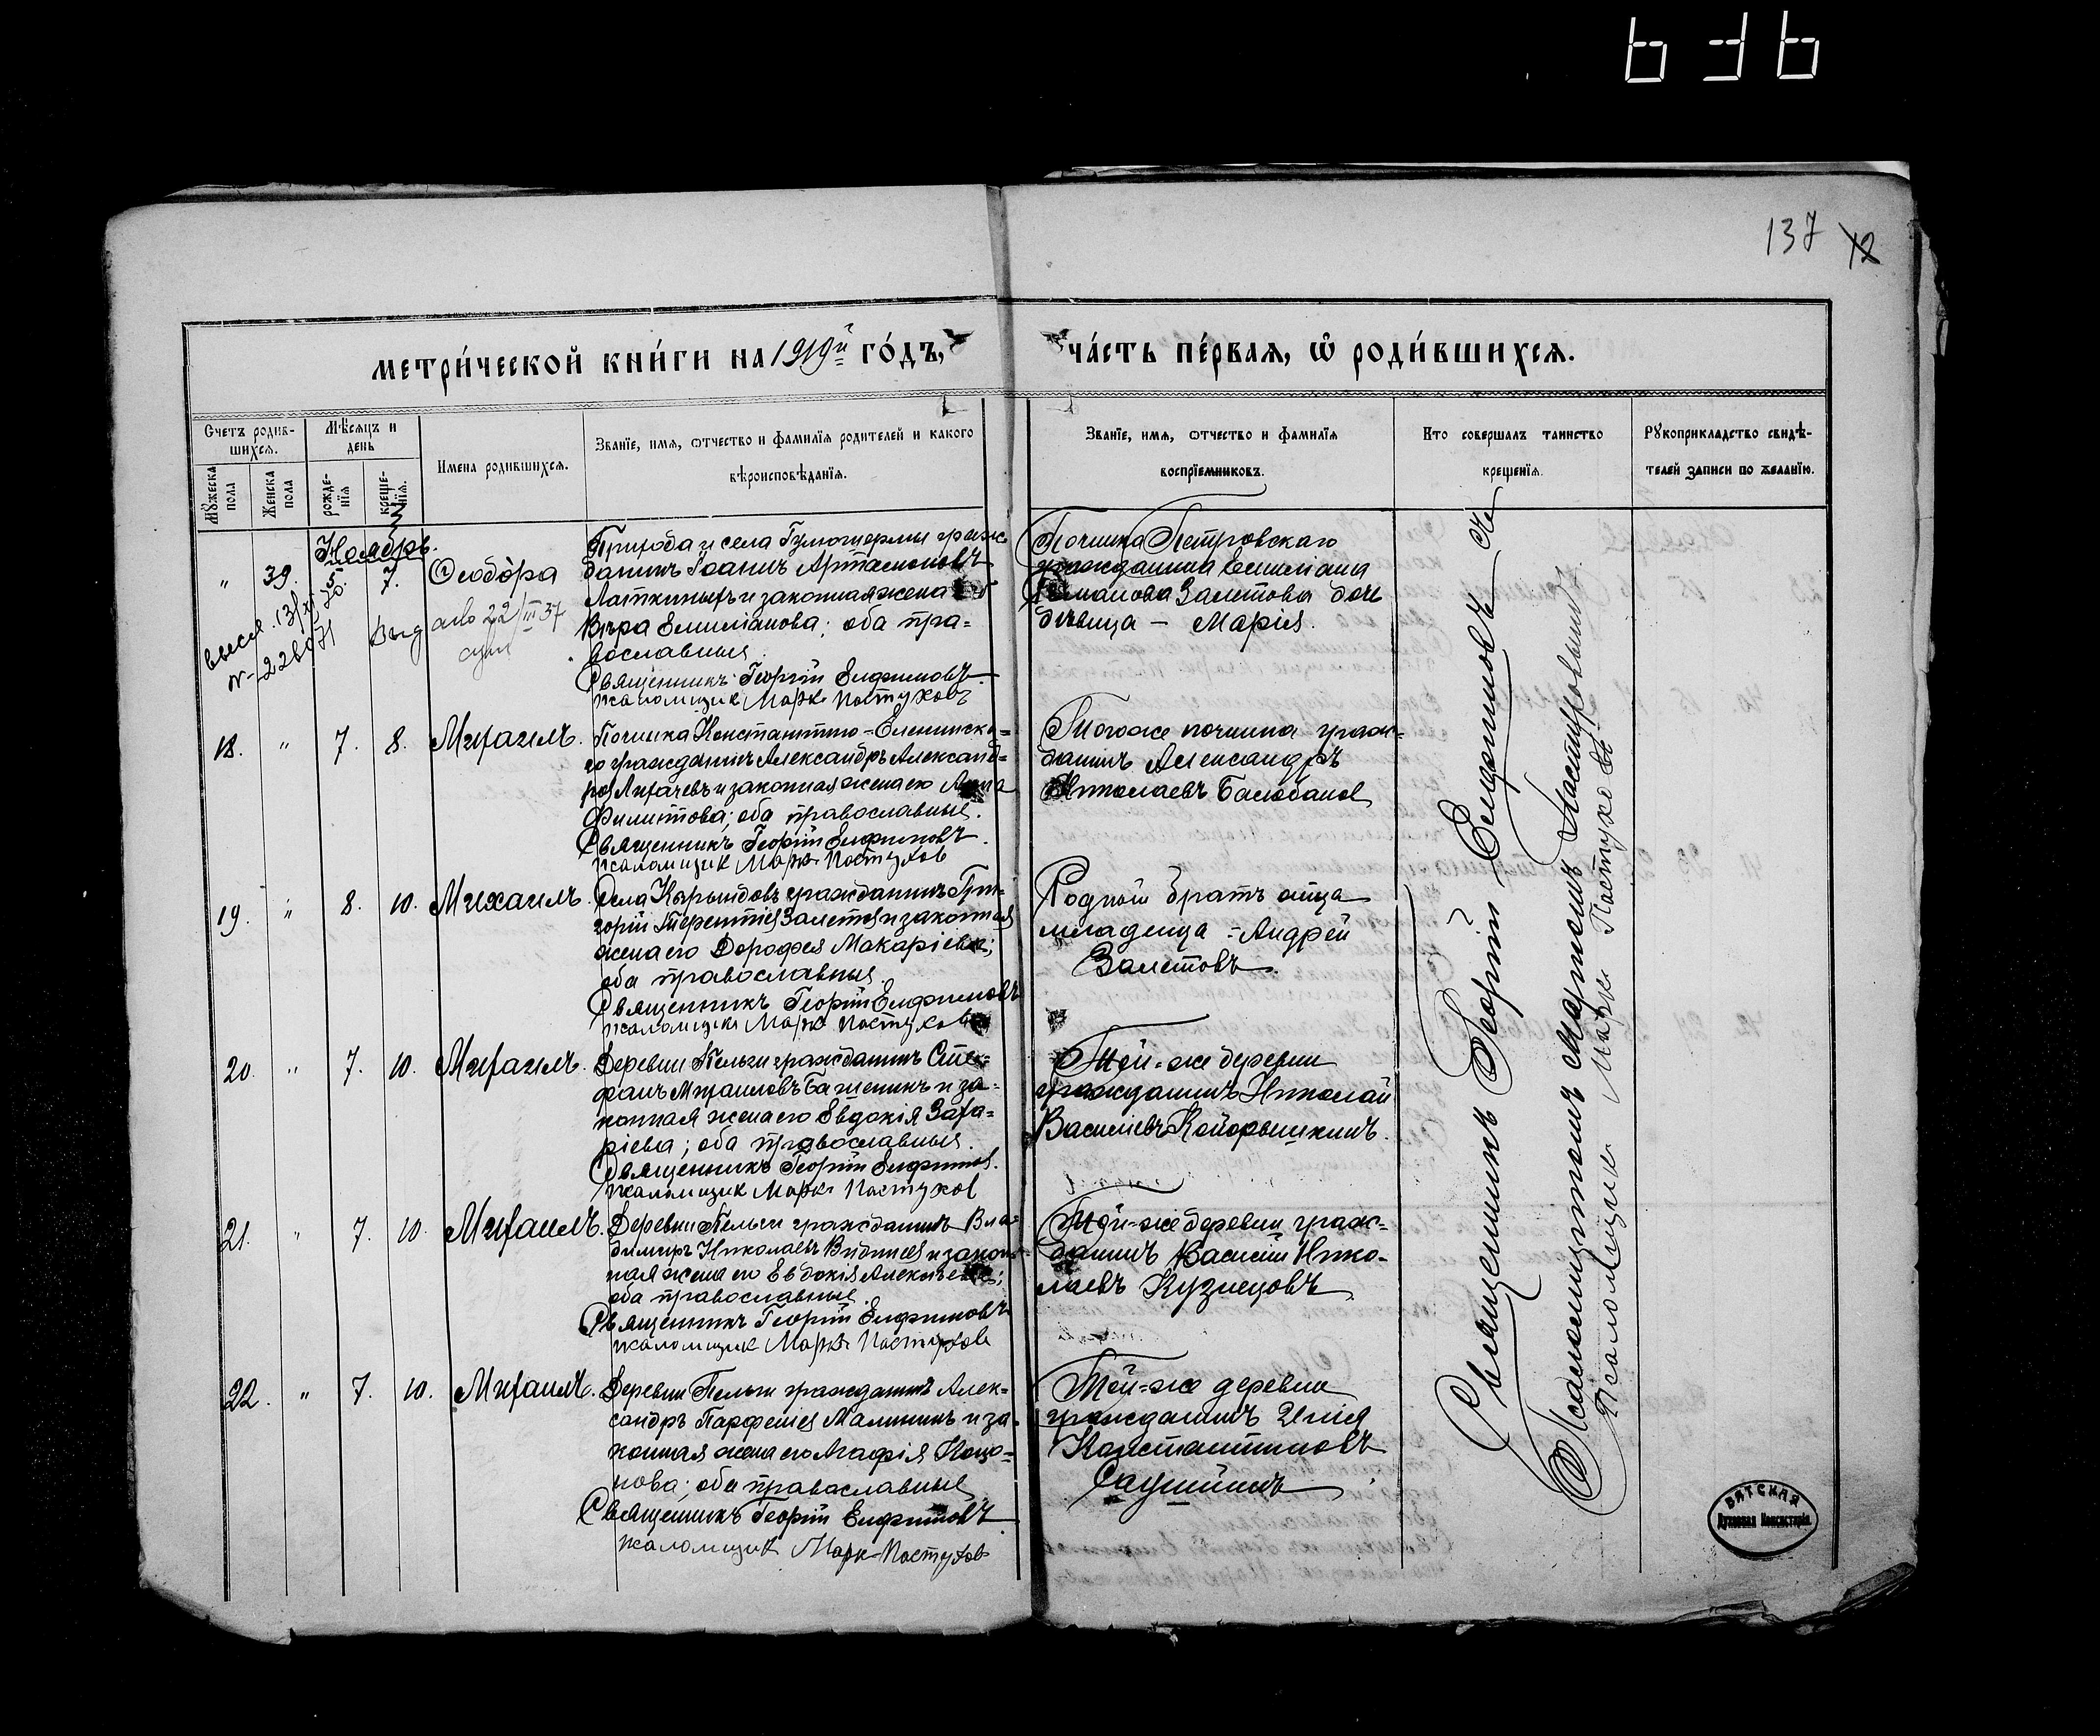 636
137 12
метри́ческой кни́ги на 1919й го́дъ,
ча́сть пе́рвая, ѡ҆ роди́вшихся.
Счетъ родив-
шихся.
Мѣсяцъ и
день
Мужеска
пола
Женска
пола
рожде-
нія
креще-
нія.
Имена родившихся.
Званїе, имя, ѿтчество и фамилїя родителей и какого
вѣроисповѣданїя.
Званїе, имя, ѿтчество и фамилїя
воспрїемниковъ.
Кто совершалъ таинство
крещенїя.
Рукоприкладство свидѣ-
телей записи по желанїю.
Ноябрь.
" 39. 5. 7. Ѳеодора
Прихода и села Гулюшермы граж-
данинъ Іоаннъ Артамоновъ
Латкинъ и законная жена его
Вѣра Емиліанова; оба пра-
вославные
Священникъ Георгій Елфимовъ.
псаломщик Марк Пастухов
Починка Петровскаго
гражданина Емиліана
Романова Залетова дочь
дѣвица – Марія.
22/III 37
18. " 7. 8. Михаилъ.
Починка Константино-Еленинска-
го гражданинъ Александръ Александ-
ров Лихачевъ и законная жена его Анна
Филиппова; оба православные.
Священникъ Георгій Елфимовъ.
псаломщик Марк Пастухов
Тогоже починка граж-
данинъ Александръ
Николаевъ Балобанов
19. " 8. 10. Михаилъ.
Села Кырындовъ гражданинъ Гри-
горій Терентіев Залетов и законная
жена его Дорофея Макаріева;
оба православные
Священникъ Георгій Елфимовъ
псаломщик Марк Пастухов
Родной братъ отца
младенца – Андрей
Залетовъ.
20. " 7. 10. Михаилъ.
Деревни Пельги гражданинъ Сте-
фанъ Михаиловъ Баженинъ и за-
конная жена его Евдокія Заха-
ріева; оба православные.
Священникъ Георгій Елфимов.
псаломщик Марк Пастухов
Той-же деревни
гражданинъ Николай
Василіевъ
21. " 7. 10. Михаилъ.
Деревни Пельги гражданинъ Вла-
димиръ Николаевъ и закон-
ная жена его Евдокія Алексѣева;
оба православные.
Священникъ Георгій Елфимовъ
псаломщик Марк Пастухов
Той-же деревни граж-
данинъ Василій Нико-
лаевъ Кузнецовъ
22. " 7. 10. Михаилъ.
Деревни Пельги гражданинъ Алек-
сандръ Парфеніев Малининъ и за-
конная жена его Агафія Коно-
нова; оба православные
Священникъ Георгій Елфимовъ
псаломщик Марк Пастухов
Той-же деревни
гражданинъ Илія
Константиновъ
Священникъ Георгій Елфимовъ съ
Псаломщикомъ Маркомъ Пастуховымъ.
Псаломщик Марк Пастухов
ВЯТСКАЯ
Духовная Консисторія.